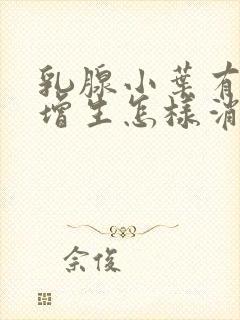 乳腺小葉有
增生怎樣消
佘俊